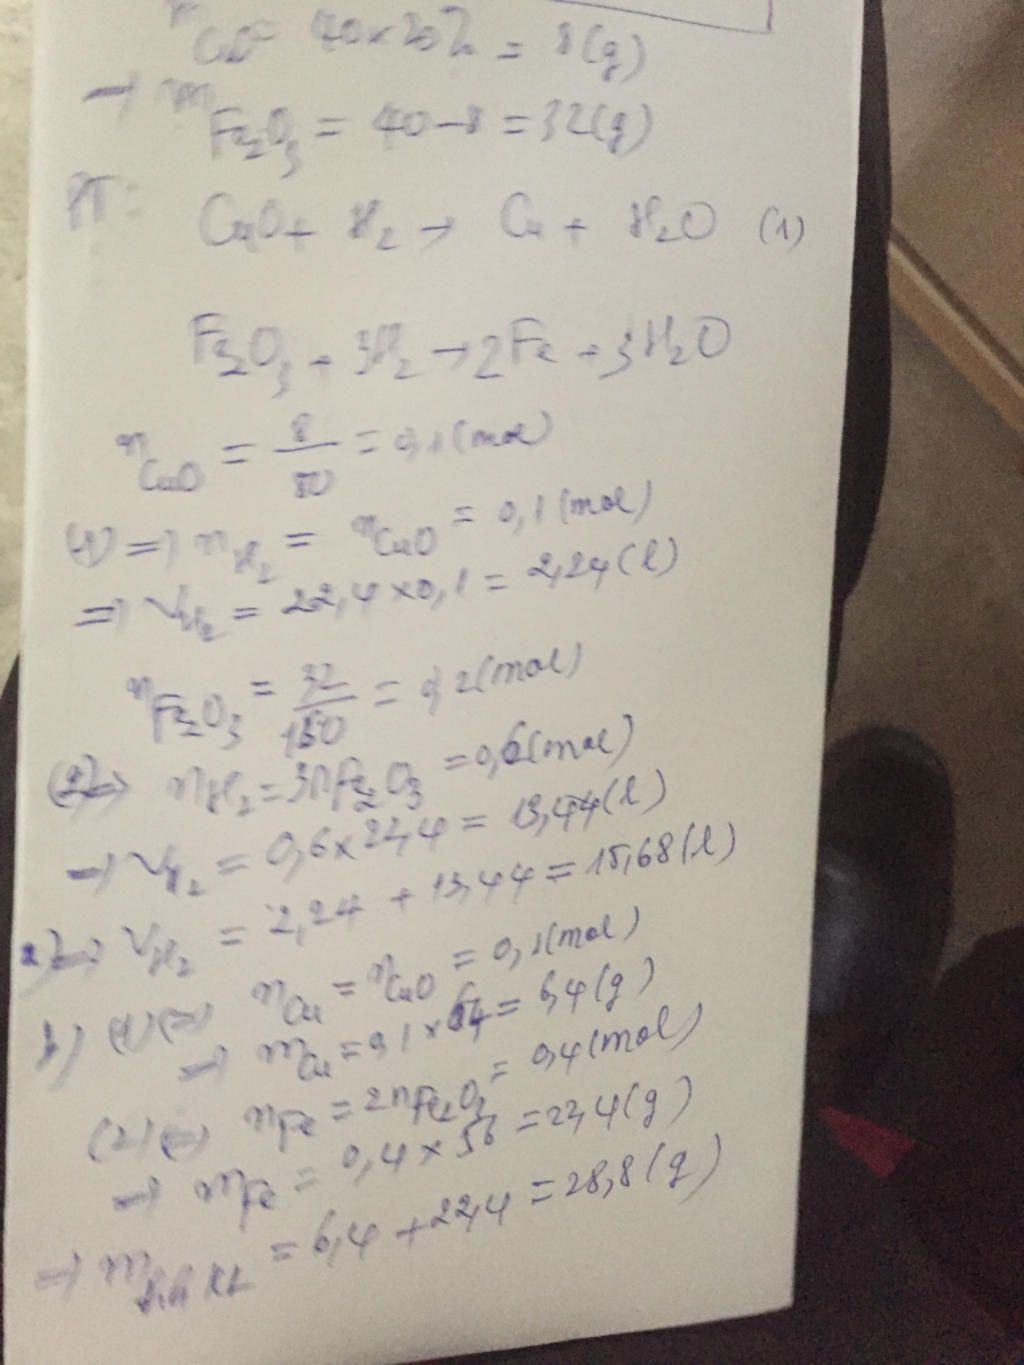 m CuO = 40×20% = 8(g)
→ m Fe₂O₃ = 40-8 = 32(g)
PT: CuO + H₂ → Cu + H₂O (1)
Fe₂O₃ + 3H₂ → 2Fe + 3H₂O
n CuO = 8/80 = 0,1(mol)
(1) => n H₂ = n CuO = 0,1(mol)
=> V H₂ = 22,4×0,1 = 2,24(l)
n Fe₂O₃ = 32/160 = 0,2(mol)
(2) => n H₂ = 3n Fe₂O₃ = 0,6(mol)
→ V H₂ = 0,6×22,4 = 13,44(l)
a) => V H₂ = 2,24 + 13,44 = 15,68(l)
b) (1) => n Cu = n CuO = 0,1(mol)
→ m Cu = 0,1×64 = 6,4(g)
(2) => n Fe = 2n Fe₂O₃ = 0,4(mol)
→ m Fe = 0,4×56 = 22,4(g)
→ m = 6,4 + 22,4 = 28,8(g)